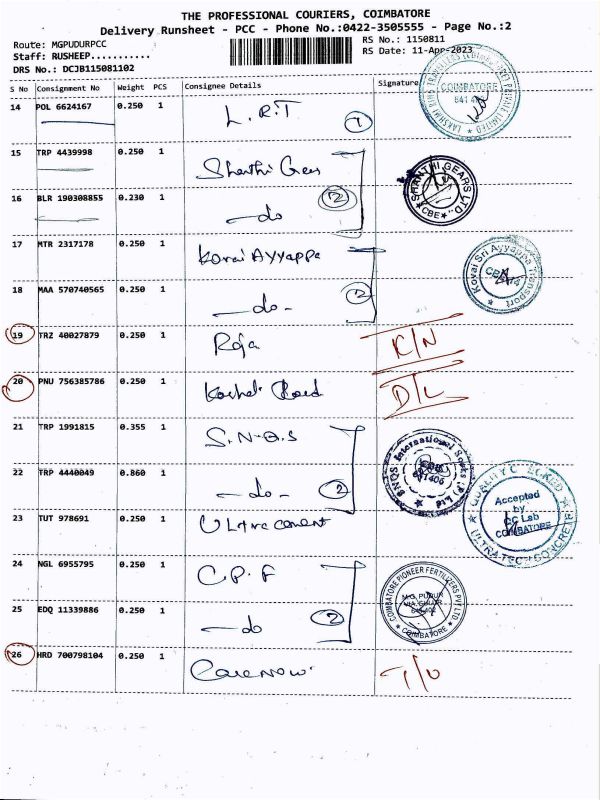 THE PROFESSIONAL COURIERS, COIMBATORE
Delivery Runsheet - PCC - Phone No.:0422-3505555 - Page No.:2
Route: MGPUDURPCC
RS No.: 1150811
Staff: RUSHEEP...........
RS Date: 11-Apr-2023
DRS No.: DCJB115081102
S No Consignment No Weight PCS Consignee Details Signature
14 POL 6624167 0.250 1 L.R.T 1
COIMBATORE
15 TRP 4439998 0.250 1 Shanthi Gears
SHANTHI GEARS LTD.
CBE
16 BLR 190308855 0.230 1 -do 2
17 MTR 2317178 0.250 1 Kovai Ayyappa
Kovai Sri Ayyappa Transport
18 MAA 570740565 0.250 1 -do- 2
19 TRZ 40027879 0.250 1 Roja R/N
20 PNU 756385786 0.250 1 D/L
21 TRP 1991815 0.355 1 S.N.Q.S
SNQS International Socks (P) Ltd
22 TRP 4440049 0.860 1 -do- 2
23 TUT 978691 0.250 1 Ultra cement
ULTRATECH CONCRETE
Accepted
by
QC Lab
COIMBATORE
24 NGL 6955795 0.250 1 C.P.F
COIMBATORE PIONEER FERTILIZERS PVT LTD
COIMBATORE
25 EDQ 11339886 0.250 1 -do 2
26 HRD 700798104 0.250 1 Carenow